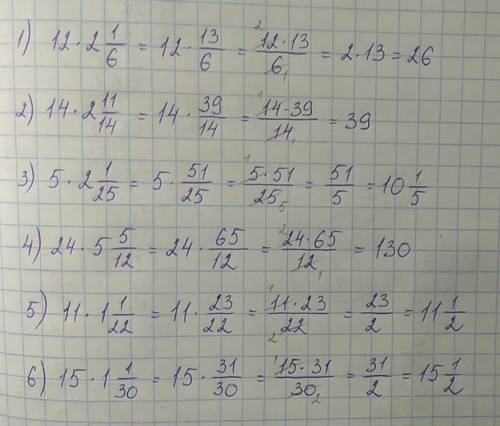 1) 12 · 2 1/6 = 12 · 13/6 = 12·13/6 = 2·13 = 26
2) 14 · 2 11/14 = 14 · 39/14 = 14·39/14 = 39
3) 5 · 2 1/25 = 5 · 51/25 = 5·51/25 = 51/5 = 10 1/5
4) 24 · 5 5/12 = 24 · 65/12 = 24·65/12 = 130
5) 11 · 1 1/22 = 11 · 23/22 = 11·23/22 = 23/2 = 11 1/2
6) 15 · 1 1/30 = 15 · 31/30 = 15·31/30 = 31/2 = 15 1/2